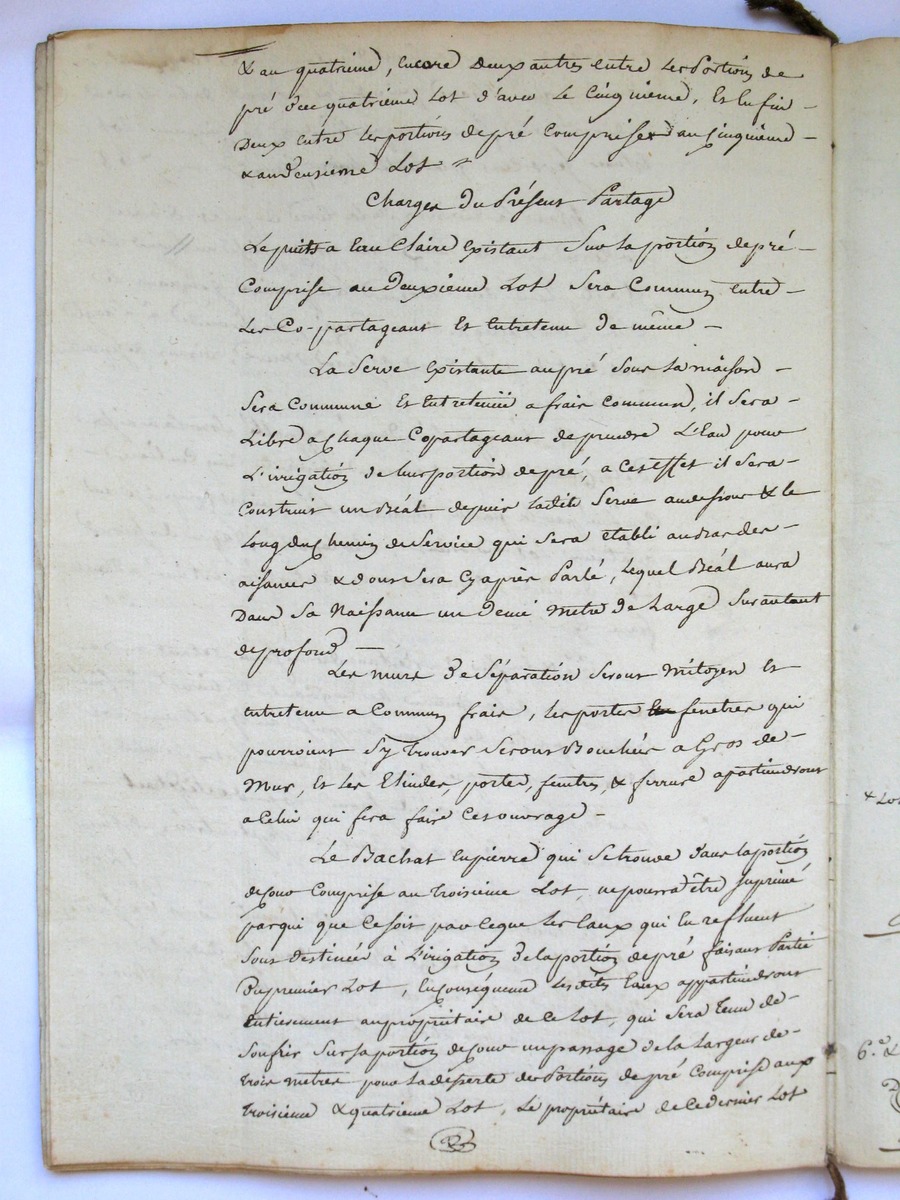 & au quatrieme, encore deux autres entre les Portions de
pré du quatrieme Lot d'avec le Cinquieme, Et Enfin –
Deux Entre les portions de pré Comprises au Cinquieme –
& au deuxieme Lot "
Charges du Présent Partage
Le puits a Eau Claire Existant Sur la portion de pré –
Comprise au deuxieme Lot Sera Commun entre –
Les Co-partageant Et Entretenu de même –
La Serve Existante au pré Sous la maison –
Sera Commune Et Entretenüe a frais Commun, il Sera –
Libre a Chaque Copartageant de prendre L'Eau pour
L'irrigation de leur portion de pré, a cest Effet il Sera –
Construit un Béal depuis ladite Serve au dessous & le
Long du Chemin de Service qui Sera Etabli au bas des –
aisances & dont Sera Cy après Parlé, Lequel Béal aura
Dans Sa Naissance un demi metre de Large Sur autant
de profond –
Les murs de Séparation Seront Mitoyen Et
Entretenu a Commun frais, les portes fenêtres qui
pourroient S'y trouver Seront Bouchés a Gros de –
Mur, Et Les portes, fenêtres, & ferrure apartiendront
a Celui qui fera faire Cet ouvrage –
Le Bachat En pierre qui Se trouve dans la portion
de Cour Comprise au troisieme Lot, ne pourra être Suprimé
par qui que Ce Soit parceque Les Eaux qui En refluent
Sont destinées à L'irigation de la portion de pré faisant Partie
Du premier Lot, En Conséquence Lesdites Eaux appartiendront
Entierement au propriétaire de Ce Lot, qui Sera tenu de –
Soufrir Sur Sa portion de Cour un passage de la Largeur de –
trois metres pour la désserte des Portions de pré Comprise aux
troisieme & quatrieme Lot, Le propriétaire de Ce dernier Lot
6.e &